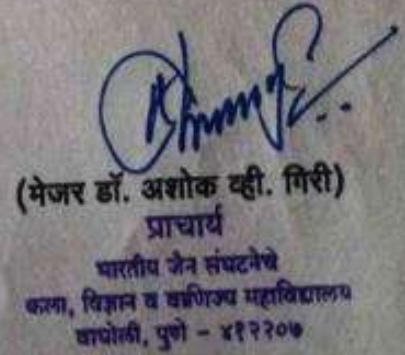 (मेजर डॉ. अशोक व्ही. गिरी)
प्राचार्य
भारतीय जैन संघटनेचे
कला, विज्ञान व वाणिज्य महाविद्यालय
वाघोली, पुणे - ४१२२०७